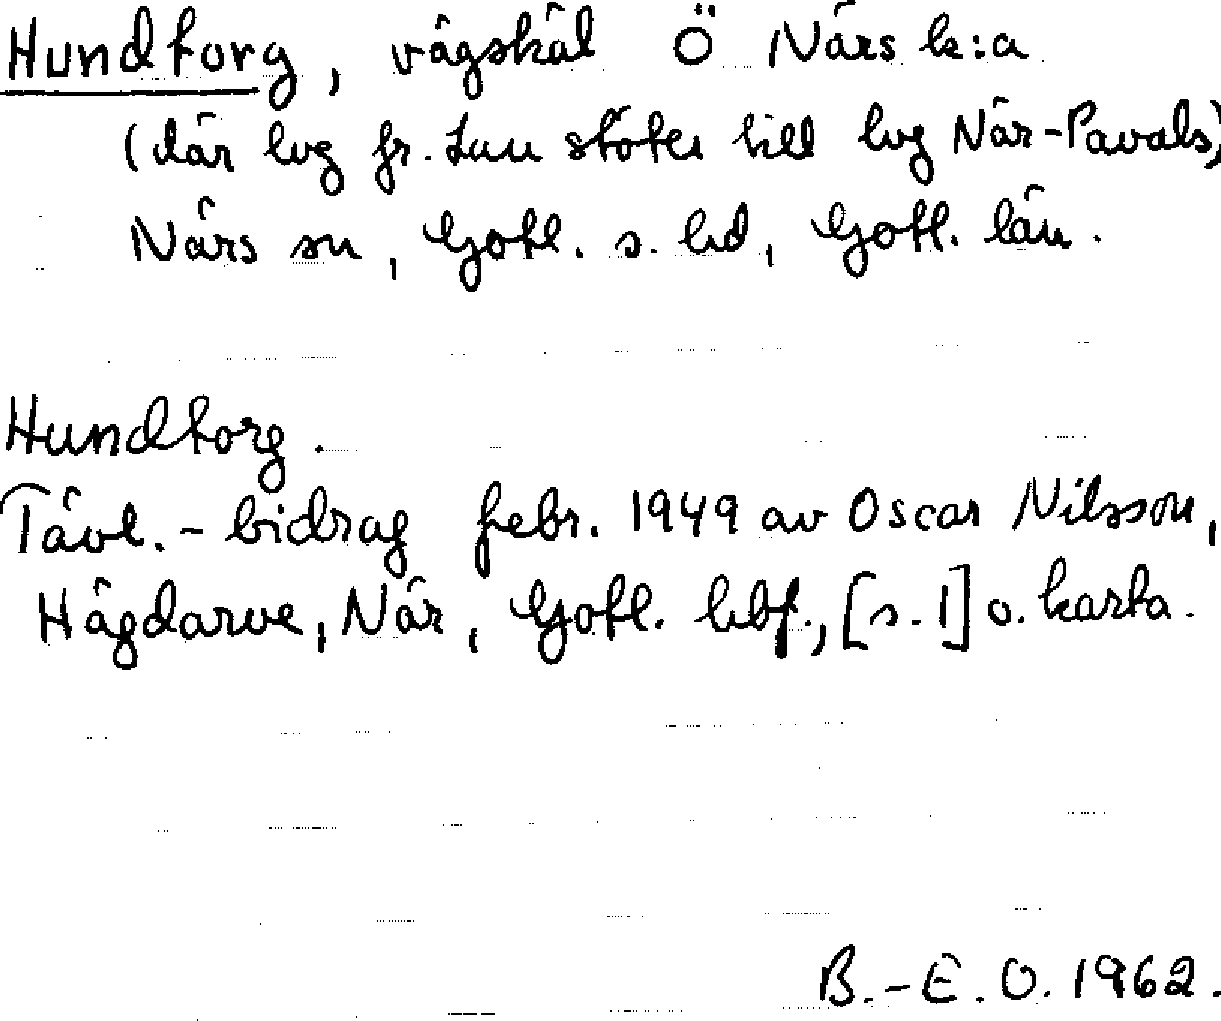 Hundtorg, vägskäl Ö Närs k:a
(där lvg fr. Lau stöter till lvg När-Pavals)
Närs sn, Gotl. s. hd, Gotl. län.
Hundtorg.
Tävl.-bidrag febr. 1949 av Oscar Nilsson,
Hägdarve, När, Gotl. hbf., [s. 1] o. karta.
B.-E. O. 1962.